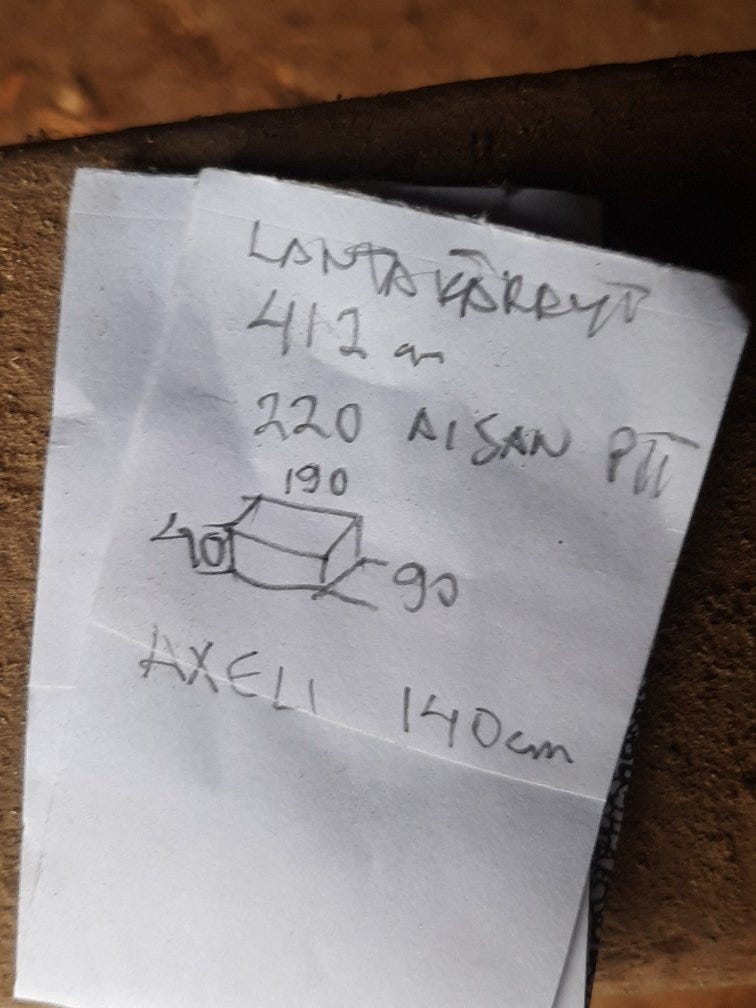 LANTAKÄRRYT
412 cm
220 AISAN PIT
190
40
90
AXELI 140cm